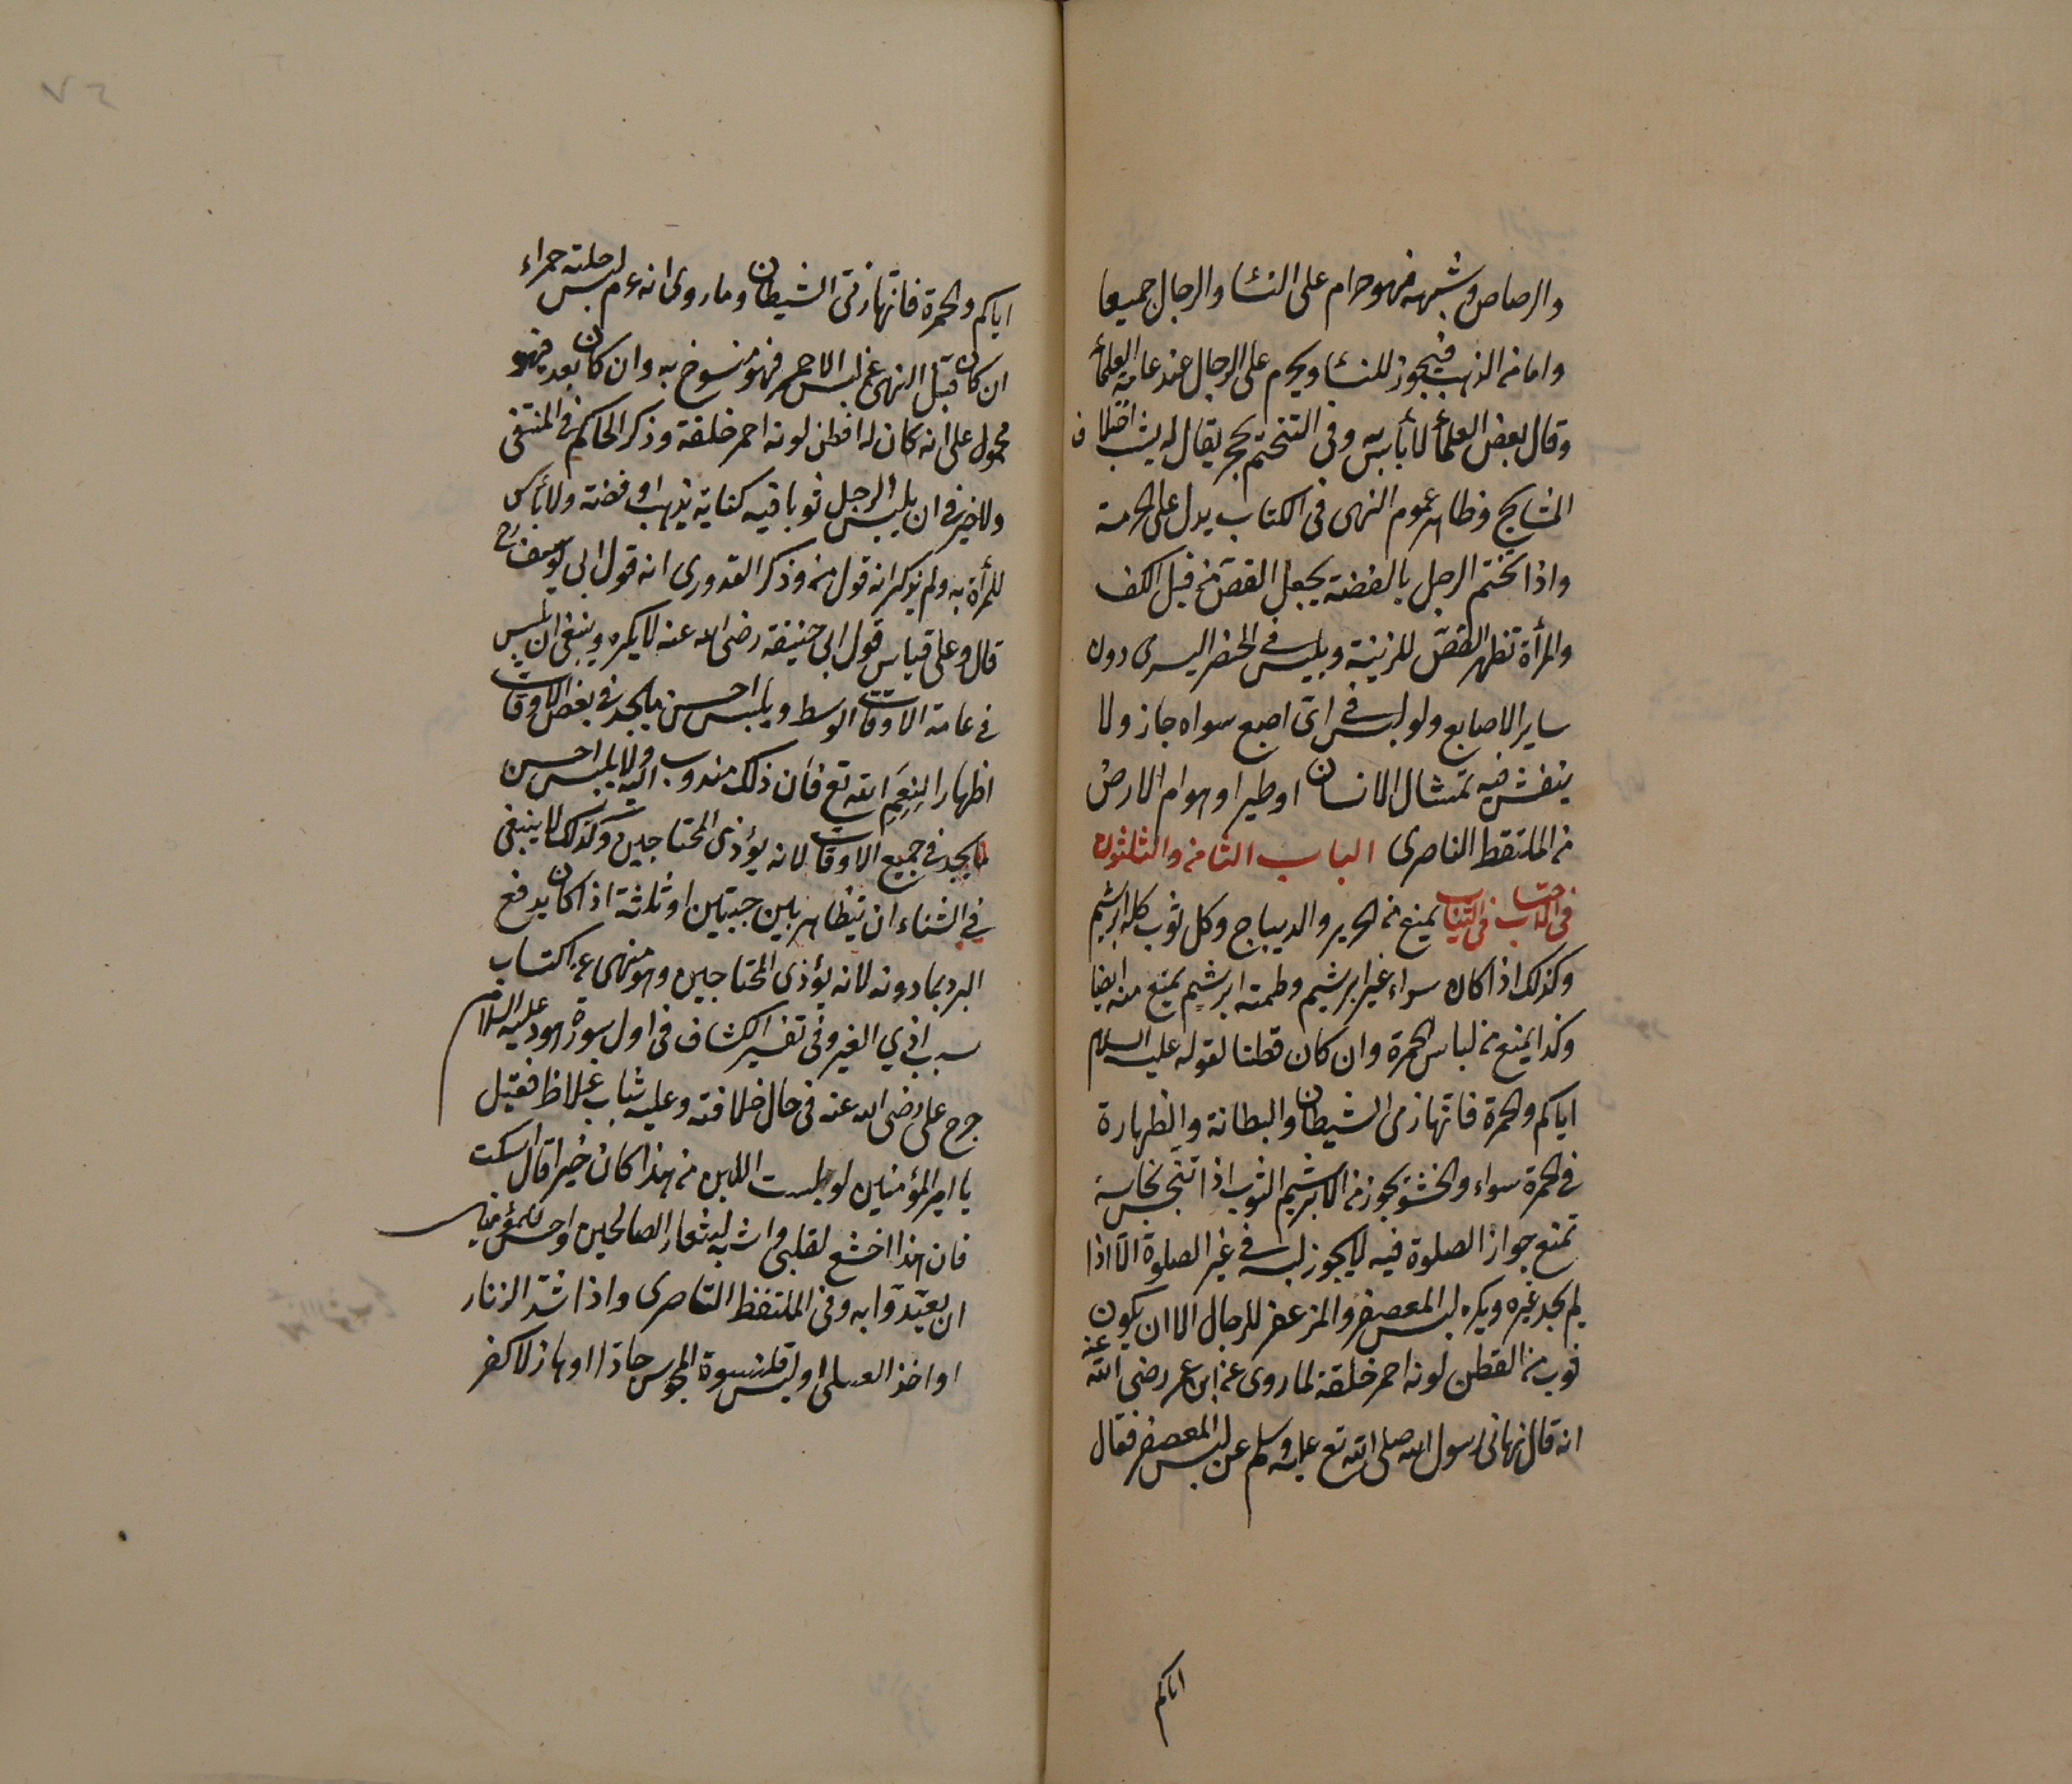 والرصاص وشبهه فهو حرام على النساء والرجال جميعا
واما من الذهب فيجوز للنساء ويحرم على الرجال عند عامة العلماء
وقال بعض العلماء لا بأس به وفي التختم بحجر يقال له يشب اختلاف
المشايخ وظاهر عموم النهى فى الكتاب يدل على الحرمة
واذا تختم الرجل بالفضة يجعل الفص من قبل الكف
والمرأة تظهر الفص للزينة ويلبس فى الخنصر اليسرى دون
ساير الاصابع ولو لبس فى اى اصبع سواه جاز ولا
ينقش فيه تمثال الانسان او طير او هوام الارض
من الملتقط الناصرى الباب الثامن والثلثون
فى الاحتساب فى الثياب يمنع من الحرير والديباج وكل ثوب كله ابريشم
وكذلك اذا كان سداه غير ابريشم ولحمته ابريشم يمنع منه ايضا
وكذا يمنع من لباس الحمرة وان كان قطنا لقوله عليه السلام
اياكم والحمرة فانها زى الشيطان والبطانة والظهارة
فى الحمرة سواء والحشو يجوز من الابريشم الثوب اذا تنجس بنجاسة
تمنع جواز الصلوة فيه لا يجوز لبسه فى غير الصلوة الا اذا
لم يجد غيره ويكره لبس المعصفر والمزعفر للرجال الا ان يكون
ثوب من القطن لونه احمر خلقة لما روى عن ابن عمر رضى الله عنه
انه قال نهانى رسول الله صلى الله تع عليه وسلم عن لبس المعصفر فقال
اياكم
اياكم والحمرة فانها زى الشيطان وما روى انه عم لبس حلة حمراء
ان كان قبل النهى عن لبس الاحمر فهو منسوخ به وان كان بعد فهو
محمول على انه كان له قطن لونه احمر خلقة وذكر الحاكم فى المنتقى
ولا خير فى ان يلبس الرجل ثوبا فيه كتابة بذهب او فضة ولا بأس
للمرأة به ولم يذكر انه قول من وذكر القدورى انه قول ابى يوسف رح
قال وعلى قياس قول ابى حنيفة رضى الله عنه لا يكره وينبغى ان يلبس
فى عامة الاوقات الوسط ويلبس احسن ما يجد فى بعض الاوقات
اظهارا لنعم الله تع فان ذلك مندوب اليه ولا يلبس احسن
ما يجد فى جميع الاوقات لانه يؤذى المحتاجين وكذلك لا ينبغى
فى الشتاء ان يتظاهر بين جبتين او ثلثة اذا كان يدفع
البرد بما دونه لانه يؤذى المحتاجين وهو منهى عن اكتساب
سبب اذي الغير وفى تفسير الكشاف فى اول سورة هود عليه السلام
خرج على رضى الله عنه فى حال خلافته وعليه ثياب غلاظ فقيل
يا امير المؤمنين لو لبست اللين من هذا كان خيرا قال اسكت
فان هذا اخشع لقلبى واشبه لشعار الصالحين واحسن للمؤمنين
ان يقتدوا به وفى الملتقط الناصرى واذا شد الزنار
او اخذ العسلى او لبس قلنسوة المجوس جادا او هازلا كفر